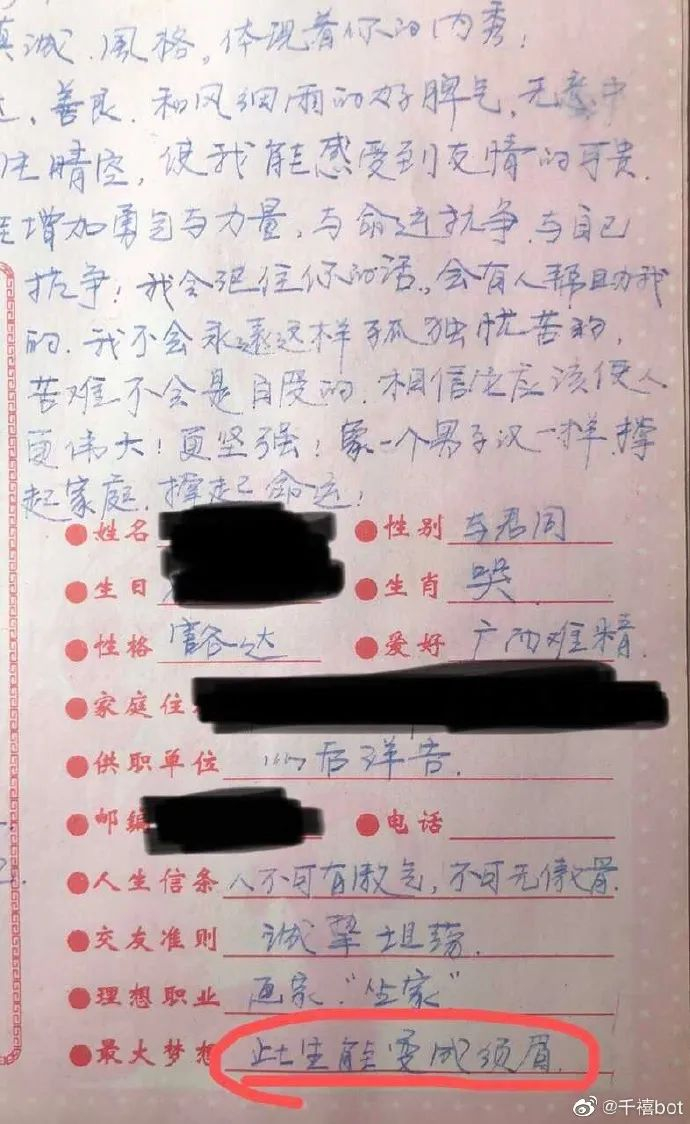 真诚、风格。体现着你的内秀!
达,善良.和风细雨的好脾气,无意中
住晴空,使我能感受到友情的可贵.
增加勇气与力量,与命运抗争.与自己
抗争!我会记住你的话。会有人帮助我
的.我不会永远这样孤独忧苦的,
苦难不会是白受的.相信它应该使人
更伟大!更坚强!象一个男子汉一样.撑
起家庭.撑起命运!
●姓名 ●性别 与君同
●生日 ●生肖 哭
●性格 豁达 ●爱好 广而难精.
●家庭住
●供职单位 以后详告.
●邮编 ●电话
●人生信条 人不可有傲气,不可无傲骨.
●交友准则 诚挚坦荡.
●理想职业 画家."坐家"
●最大梦想 此生能变成须眉.
@千禧bot